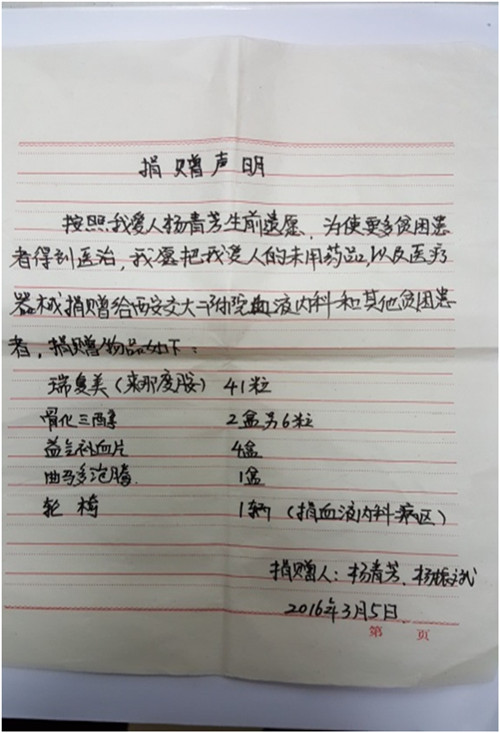 捐赠声明
按照我爱人杨青芳生前遗愿,为使更多贫困患
者得到医治,我愿把我爱人的未用药品,以及医疗
器械捐赠给西安交大二附院血液内科和其他贫困患
者,捐赠物品如下:
瑞复美(来那度胺) 41粒
骨化三醇 2盒另6粒
益气补血片 4盒
曲马多泡腾 1盒
轮椅 1辆(捐血液内科病区)
捐赠人:杨青芳、杨振斌
2016年3月5日
第 页